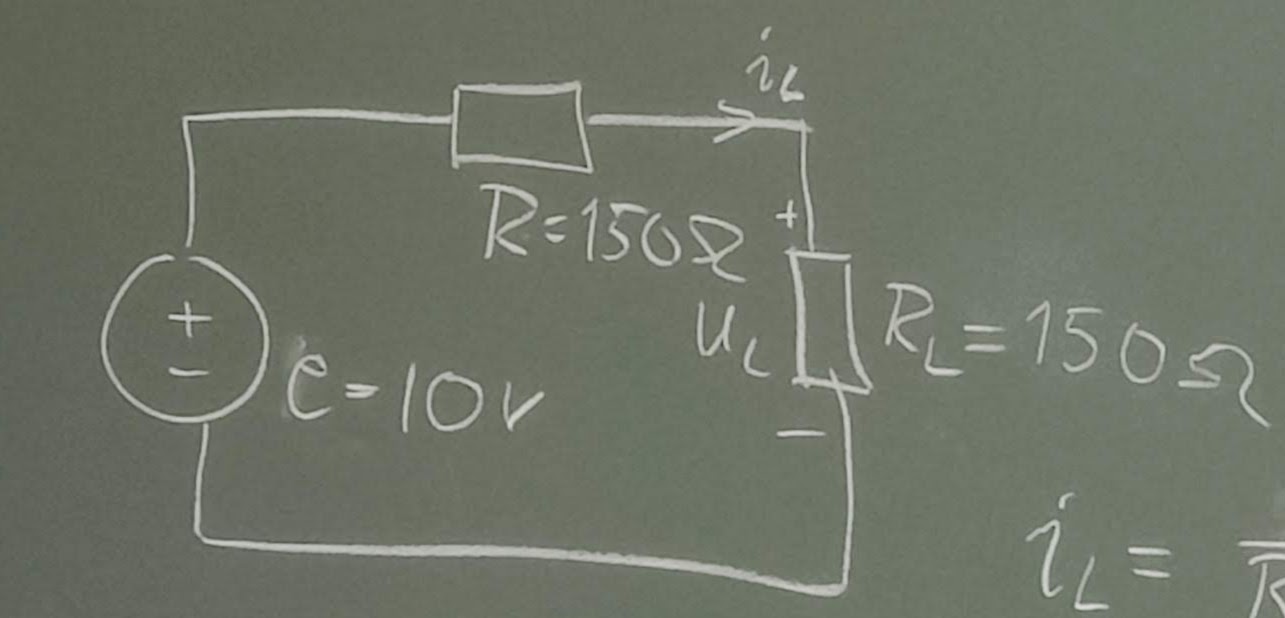 i_L
R=150Ω
+
u_L
R_L=150Ω
+
−
e=10V
−
i_L=
R